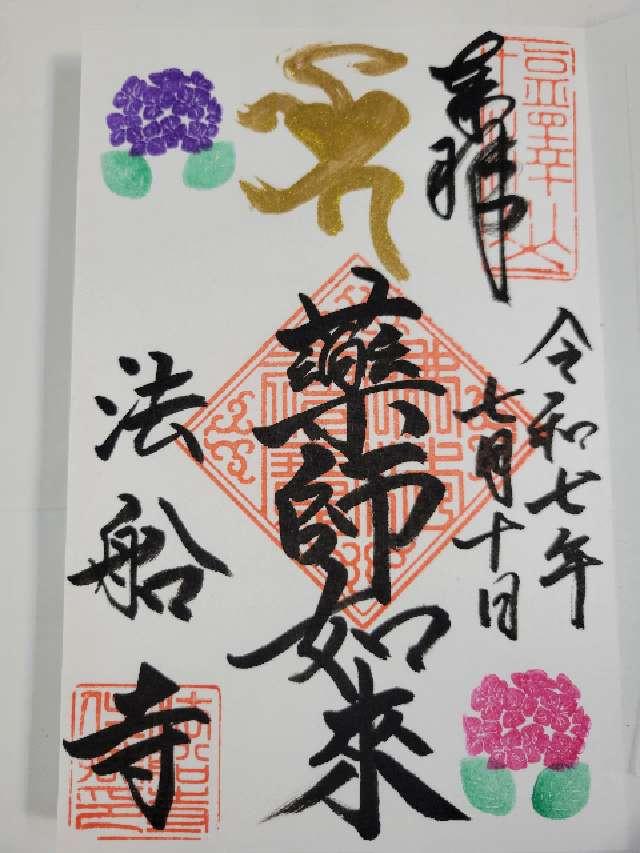 奉拝
令和七年
七月十日
薬師如來
法船寺